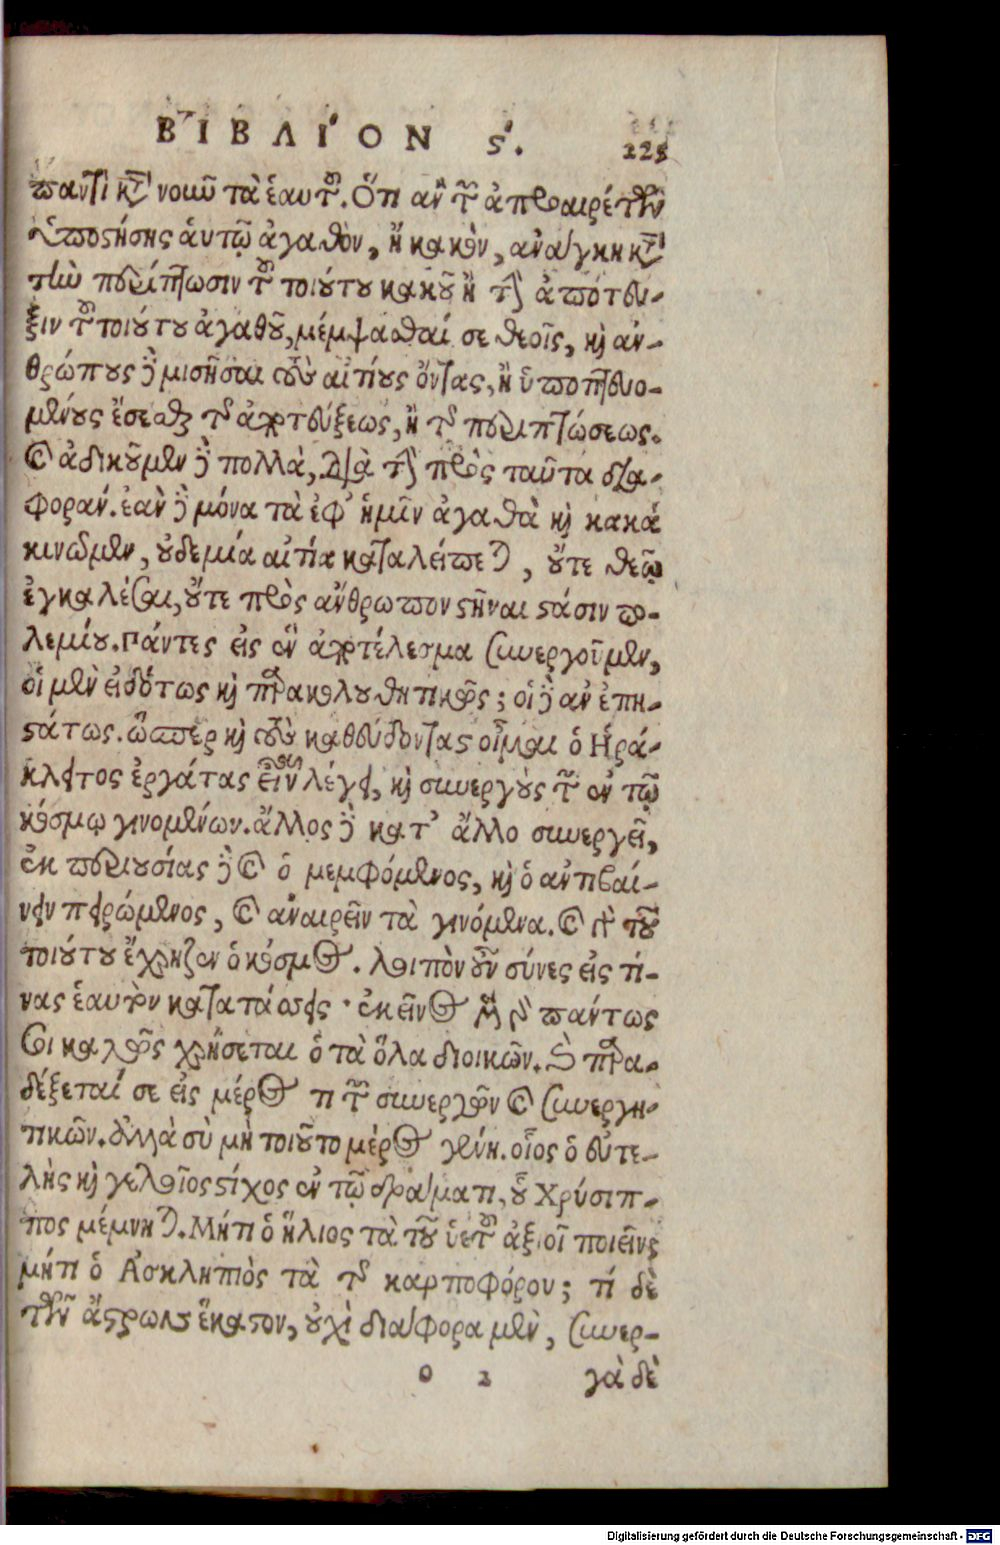 ΒΙΒΛΙΌΝ ϛ'. 225
παντὶ κτ' νοιῶ τὰ ἑαυτ͂. Ὅτι αν τ͂ ἀπροαιρέτων
ὑποστήσῃς ἁυτῷ ἀγαθὸν, ἢ κακὸν, ανάγκη κτ'
τὴν περίπτωσιν τ͂ τοιούτου κακοῦ ἢ τὴν ἀπότευ-
ξιν τ͂ τοιούτου ἀγαθοῦ, μέμψασθαί σε θεοῖς, καὶ αν-
θρώπους δὲ μισῆσαι τοὺς αἰτίους ὄντας, ἢ ὑποπτευο-
μένους ἔσεσθαι τ͂ ἀποτεύξεως, ἢ τ͂ περιπτώσεως.
καὶ ἀδικοῦμεν δὲ πολλὰ, διὰ τὴν πρὸς ταῦτα δια-
φοραν. ἐαν δὲ μόνα τὰ ἐφ' ἡμῖν ἀγαθὰ καὶ κακὰ
κινωμεν, οὐδεμία αἰτία καταλείπεται, οὔτε θεῷ
ἐγκαλέσαι, οὔτε πρὸς ανθρωπον στῆναι στάσιν πο-
λεμίου. Πάντες εἰς ἓν ἀποτέλεσμα συνεργοῦμεν,
οἱ μεν εἰδότως καὶ παρακολουθητικῶς; οἱ δὲ ανεπι-
στάτως. ὥσπερ καὶ τοὺς καθεύδοντας οἶμαι ὁ Ηρά-
κλειτος ἐργάτας εἶναι λέγει, καὶ συνεργοὺς τ͂ ἐν τῷ
κόσμῳ γινομένων. ἄλλος δὲ κατ' ἄλλο συνεργεῖ,
ἐκ περιουσίας δὲ καὶ ὁ μεμφόμενος, καὶ ὁ αντιβαί-
νειν πειρώμενος, καὶ αναιρεῖν τὰ γινόμενα. καὶ γὰρ τοῦ
τοιούτου ἔχρηζεν ὁ κόσμος. λοιπὸν οὖν σύνες εἰς τί-
νας ἑαυτὸν κατατάσσεις· ἐκεῖνος μὲν γὰρ πάντως
σοι καλῶς χρήσεται ὁ τὰ ὅλα διοικῶν. καὶ παρα-
δέξεταί σε εἰς μέρος τι τ͂ συνεργῶν καὶ συνεργη-
τικῶν. ἀλλὰ σὺ μὴ τοιοῦτο μέρος γένῃ. οἷος ὁ εὐτε-
λὴς καὶ γελοῖος στίχος ἐν τῷ δράματι, οὗ Χρύσιπ-
πος μέμνηται. Μήτι ὁ ἥλιος τὰ τοῦ ὑετ͂ ἀξιοῖ ποιεῖν;
μήτι ὁ Ασκληπιὸς τὰ τ͂ καρποφόρου; τί δὲ
τῶν ἄστρων ἕκαστον, οὐχὶ διάφορα μεν, συνερ-
ο 2 γὰ δὲ
Digitalisierung gefördert durch die Deutsche Forschungsgemeinschaft - DFG